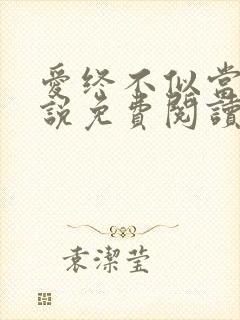 愛終不似當
說免費閱讀
袁潔瑩